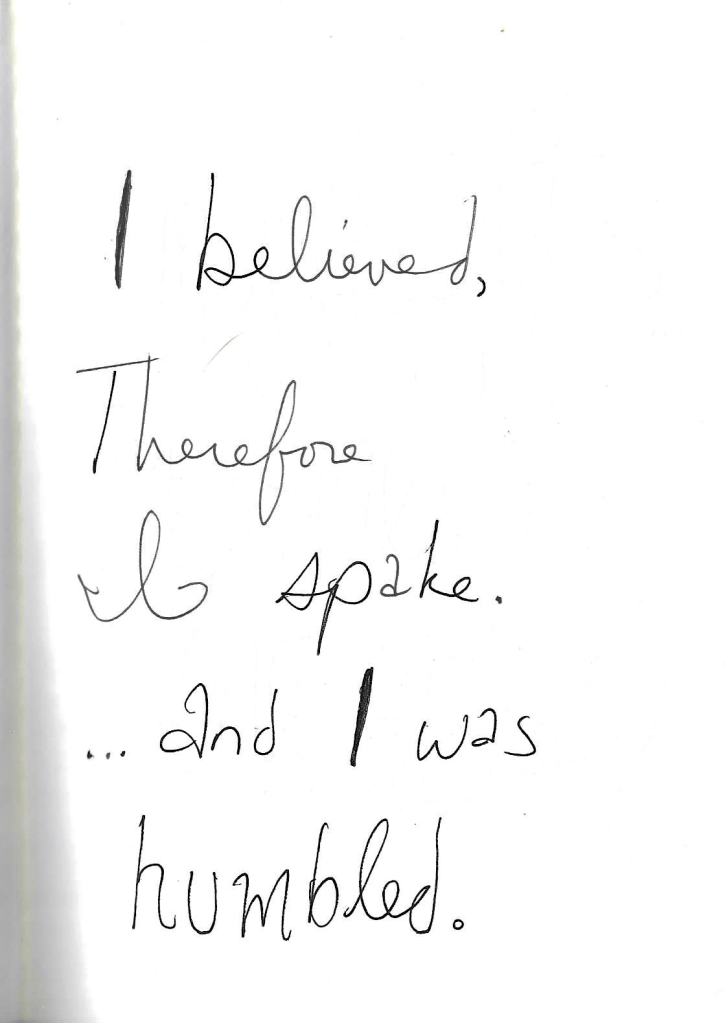 I believed,
Therefore
I spake.
... and I was
humbled.